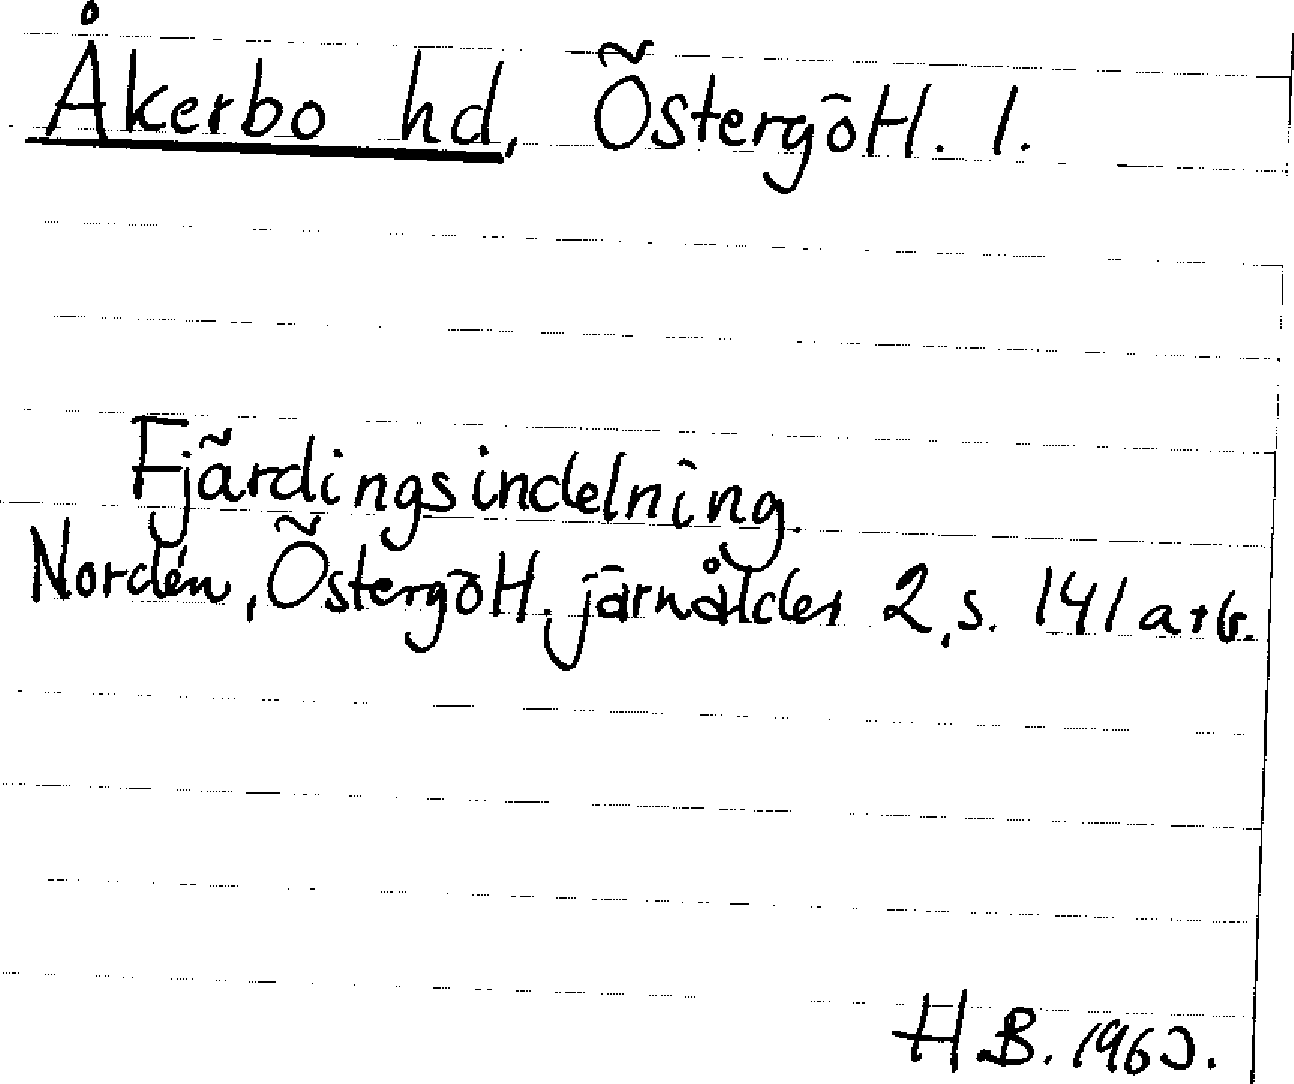 Åkerbo hd, Östergötl. l.
Fjärdingsindelning.
Nordén, Östergötl. järnålder 2, s. 141 a+b.
H.B. 1960.